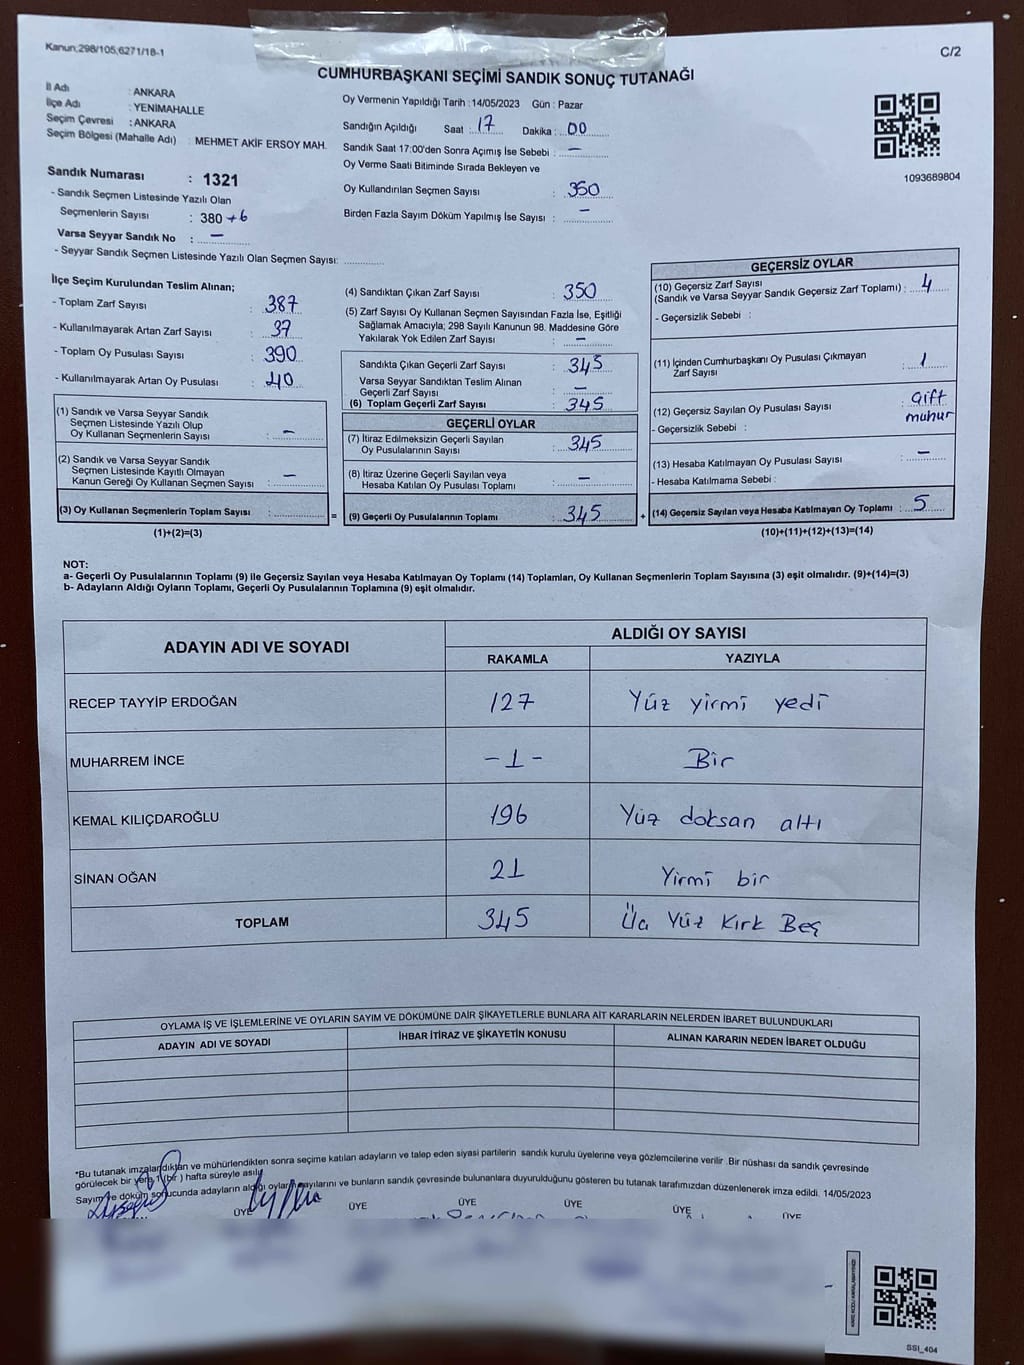 Kanun;298/105;6271/18-1
C/2
CUMHURBAŞKANI SEÇİMİ SANDIK SONUÇ TUTANAĞI
İl Adı : ANKARA
İlçe Adı : YENİMAHALLE
Seçim Çevresi : ANKARA
Seçim Bölgesi (Mahalle Adı) : MEHMET AKİF ERSOY MAH.
Sandık Numarası : 1321
- Sandık Seçmen Listesinde Yazılı Olan
Seçmenlerin Sayısı : 380 +6
Varsa Seyyar Sandık No : –
- Seyyar Sandık Seçmen Listesinde Yazılı Olan Seçmen Sayısı:
Oy Vermenin Yapıldığı Tarih : 14/05/2023 Gün : Pazar
Sandığın Açıldığı Saat : 17 Dakika : 00
Sandık Saat 17:00'den Sonra Açımış İse Sebebi : –
Oy Verme Saati Bitiminde Sırada Bekleyen ve
Oy Kullandırılan Seçmen Sayısı : 350
Birden Fazla Sayım Döküm Yapılmış İse Sayısı : –
1093689804
İlçe Seçim Kurulundan Teslim Alınan;
- Toplam Zarf Sayısı : 387
- Kullanılmayarak Artan Zarf Sayısı : 37
- Toplam Oy Pusulası Sayısı : 390
- Kullanılmayarak Artan Oy Pusulası : 40
(1) Sandık ve Varsa Seyyar Sandık
Seçmen Listesinde Yazılı Olup
Oy Kullanan Seçmenlerin Sayısı : –
(2) Sandık ve Varsa Seyyar Sandık
Seçmen Listesinde Kayıtlı Olmayan
Kanun Gereği Oy Kullanan Seçmen Sayısı : –
(3) Oy Kullanan Seçmenlerin Toplam Sayısı :
(1)+(2)=(3)
(4) Sandıktan Çıkan Zarf Sayısı : 350
(5) Zarf Sayısı Oy Kullanan Seçmen Sayısından Fazla İse, Eşitliği
Sağlamak Amacıyla; 298 Sayılı Kanunun 98. Maddesine Göre
Yakılarak Yok Edilen Zarf Sayısı : –
Sandıkta Çıkan Geçerli Zarf Sayısı : 345
Varsa Seyyar Sandıktan Teslim Alınan
Geçerli Zarf Sayısı : –
(6) Toplam Geçerli Zarf Sayısı : 345
GEÇERLİ OYLAR
(7) İtiraz Edilmeksizin Geçerli Sayılan
Oy Pusulalarının Sayısı : 345
(8) İtiraz Üzerine Geçerli Sayılan veya
Hesaba Katılan Oy Pusulası Toplamı : –
= (9) Geçerli Oy Pusulalarının Toplamı : 345 +
GEÇERSİZ OYLAR
(10) Geçersiz Zarf Sayısı
(Sandık ve Varsa Seyyar Sandık Geçersiz Zarf Toplamı) : 4
- Geçersizlik Sebebi :
(11) İçinden Cumhurbaşkanı Oy Pusulası Çıkmayan
Zarf Sayısı : 1
(12) Geçersiz Sayılan Oy Pusulası Sayısı : çift
- Geçersizlik Sebebi : mühür
(13) Hesaba Katılmayan Oy Pusulası Sayısı : –
- Hesaba Katılmama Sebebi :
(14) Geçersiz Sayılan veya Hesaba Katılmayan Oy Toplamı : 5
(10)+(11)+(12)+(13)=(14)
NOT:
a- Geçerli Oy Pusulalarının Toplamı (9) ile Geçersiz Sayılan veya Hesaba Katılmayan Oy Toplamı (14) Toplamları, Oy Kullanan Seçmenlerin Toplam Sayısına (3) eşit olmalıdır. (9)+(14)=(3)
b- Adayların Aldığı Oyların Toplamı, Geçerli Oy Pusulalarının Toplamına (9) eşit olmalıdır.
ADAYIN ADI VE SOYADI
ALDIĞI OY SAYISI
RAKAMLA YAZIYLA
RECEP TAYYİP ERDOĞAN 127 Yüz yirmi yedi
MUHARREM İNCE -1- Bir
KEMAL KILIÇDAROĞLU 196 Yüz doksan altı
SİNAN OĞAN 21 Yirmi bir
TOPLAM 345 Üç Yüz Kırk Beş
OYLAMA İŞ VE İŞLEMLERİNE VE OYLARIN SAYIM VE DÖKÜMÜNE DAİR ŞİKAYETLERLE BUNLARA AİT KARARLARIN NELERDEN İBARET BULUNDUKLARI
ADAYIN ADI VE SOYADI İHBAR İTİRAZ VE ŞİKAYETİN KONUSU ALINAN KARARIN NEDEN İBARET OLDUĞU
*Bu tutanak imzalandıktan ve mühürlendikten sonra seçime katılan adayların ve talep eden siyasi partilerin sandık kurulu üyelerine veya gözlemcilerine verilir .Bir nüshası da sandık çevresinde
görülecek bir yere 1 (bir ) hafta süreyle asılır.
Sayım ve döküm sonucunda adayların aldığı oyların sayılarını ve bunların sandık çevresinde bulunanlara duyurulduğunu gösteren bu tutanak tarafımızdan düzenlenerek imza edildi. 14/05/2023
ÜYE ÜYE ÜYE ÜYE ÜYE ÜYE
SSI_404